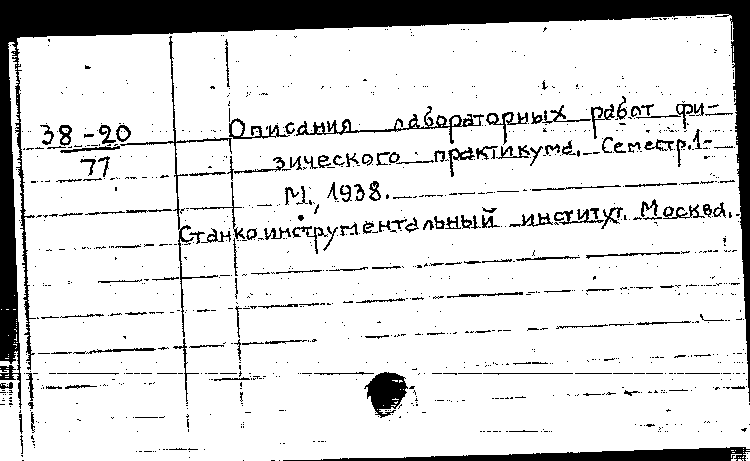 38-20
77
Описания лабораторных работ фи-
зического практикума. Семестр.1-
М., 1938.
Станкоинструментальный институт. Москва.